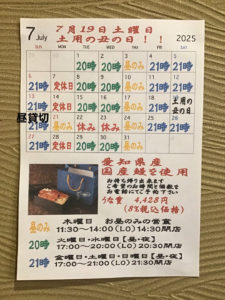 7月19日土曜日
7 July 土用の丑の日!! 2025
SUN MON TUE WED THU FRI SAT
1 2 3 4 5
20時 20時 昼のみ 21時 21時
6 7 8 9 10 11 12
21時 定休日 20時 20時 昼のみ 21時 21時
13 14 15 16 17 18 19
21時 定休日 20時 20時 昼のみ 21時 土用の丑の日
昼貸切
20 21 22 23 24 25 26
21時 昼のみ 休み 休み 昼のみ 21時 21時
27 28 29 30 31
21時 定休日 20時 20時 昼のみ
愛知県産
国産鰻を使用
お持ち帰り出来ます
ご希望のお時間と個数を
お電話にてご予約下さい
うな重 4,428円
(8%税込価格)
昼のみ 木曜日 お昼のみの営業
11:30~14:00(LO)14:30閉店
20時 火曜日・水曜日【昼・夜】
17:00~20:00(LO)20:30閉店
21時 金曜日・土曜日・日曜日【昼・夜】
17:00~21:00(LO)21:30閉店